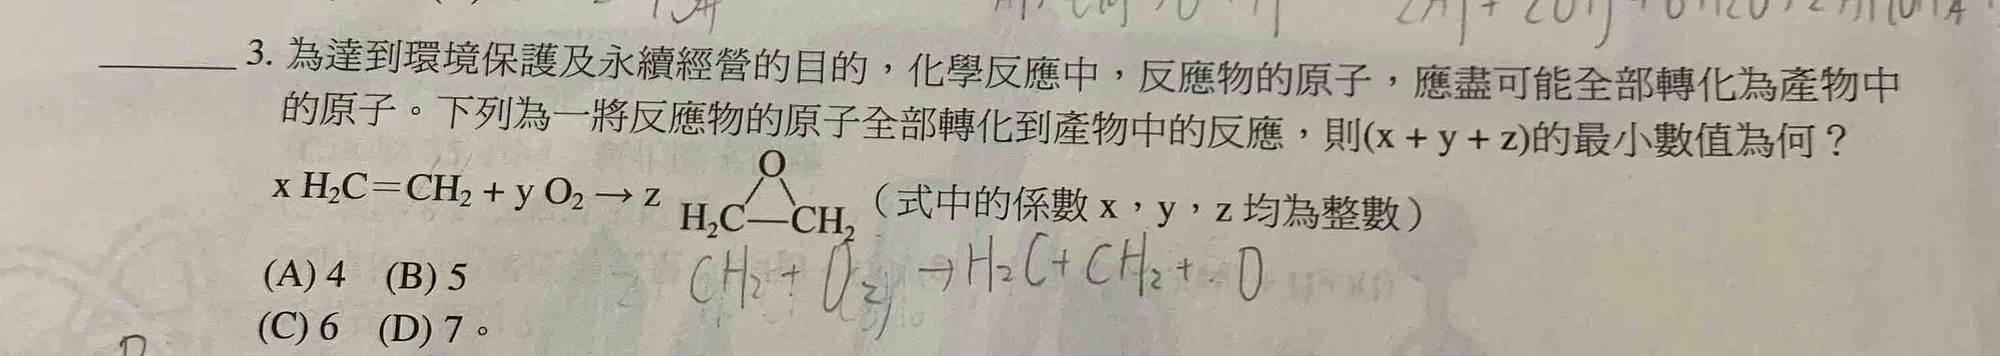 3. 為達到環境保護及永續經營的目的，化學反應中，反應物的原子，應盡可能全部轉化為產物中
的原子。下列為一將反應物的原子全部轉化到產物中的反應，則(x + y + z)的最小數值為何？
O
x H₂C=CH₂ + y O₂ → z H₂C—CH₂（式中的係數 x，y，z 均為整數）
CH₂ + O₂ → H₂C + CH₂ + O
(A) 4 (B) 5
(C) 6 (D) 7。